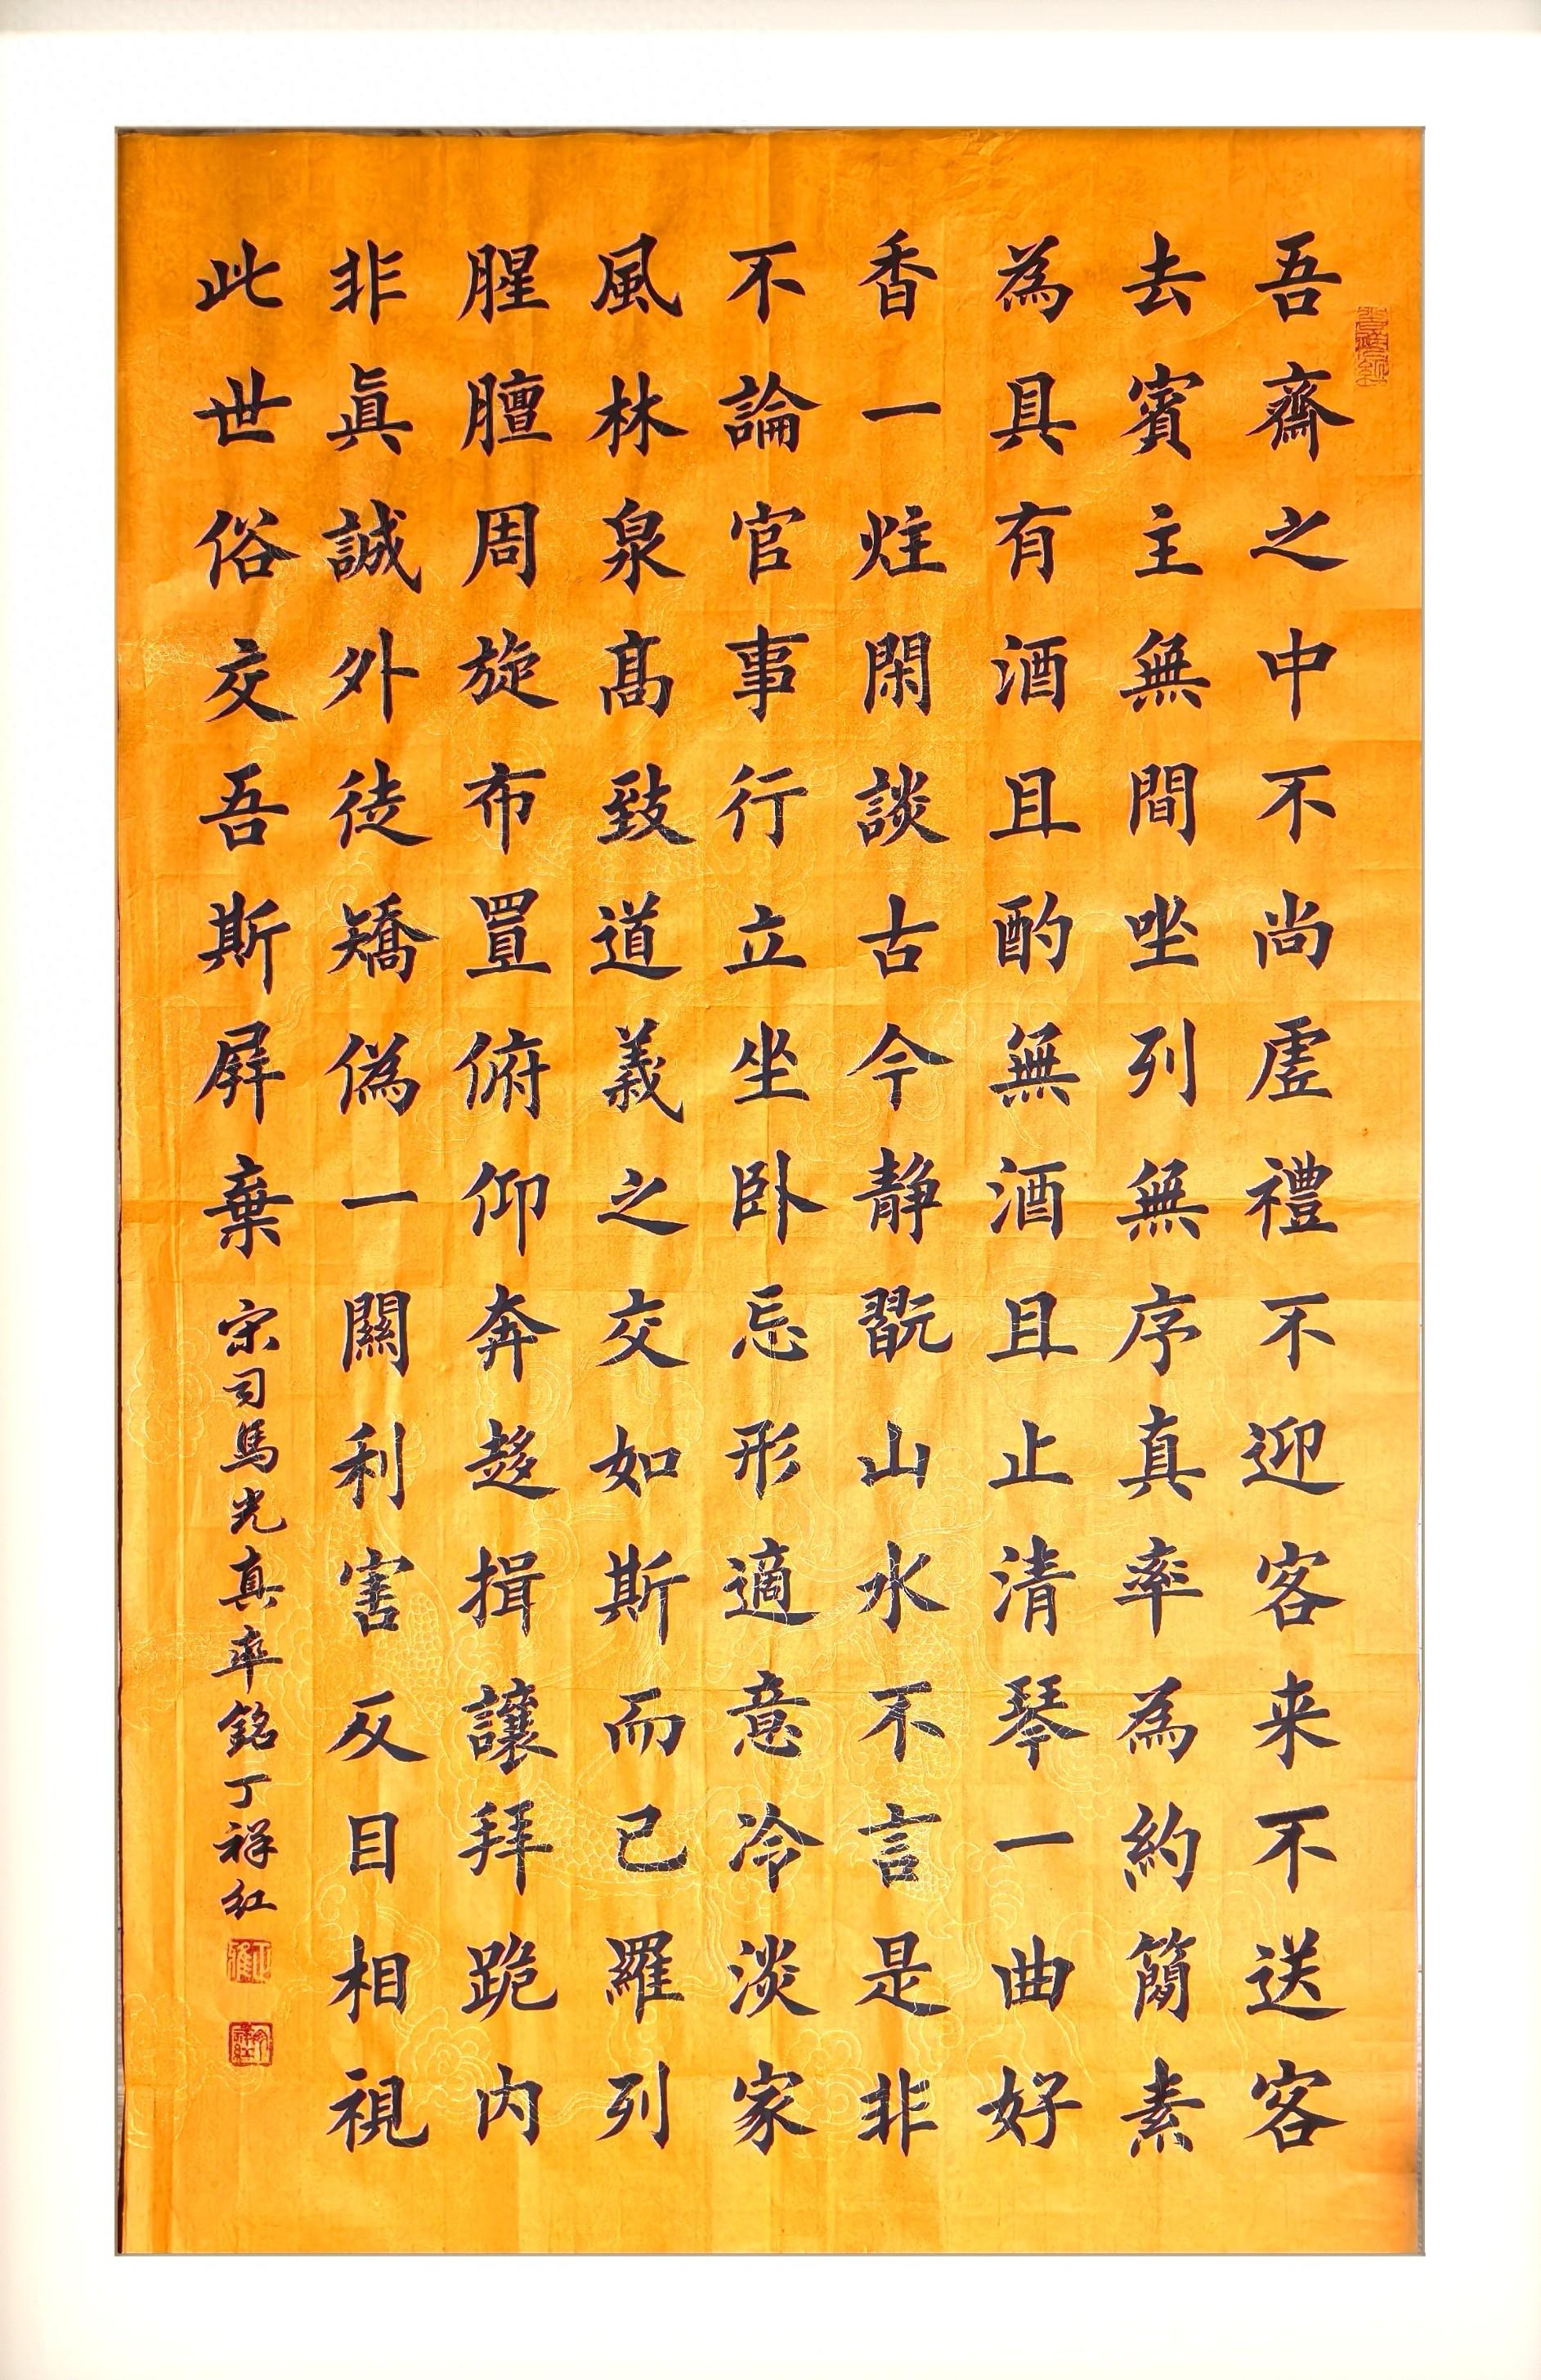 吾齋之中不尚虛禮不迎客来不送客
去賓主無間坐列無序真率為約簡素
為具有酒且酌無酒且止清琴一曲好
香一炷閑談古今静翫山水不言是非
不論官事行立坐卧忘形適意冷淡家
風林泉髙致道義之交如斯而已羅列
腥膻周旋布置俯仰奔趍揖讓拜跪内
非眞誠外徒矯偽一關利害反目相視
此世俗交吾斯屏棄
宋司馬光真率銘丁祥红